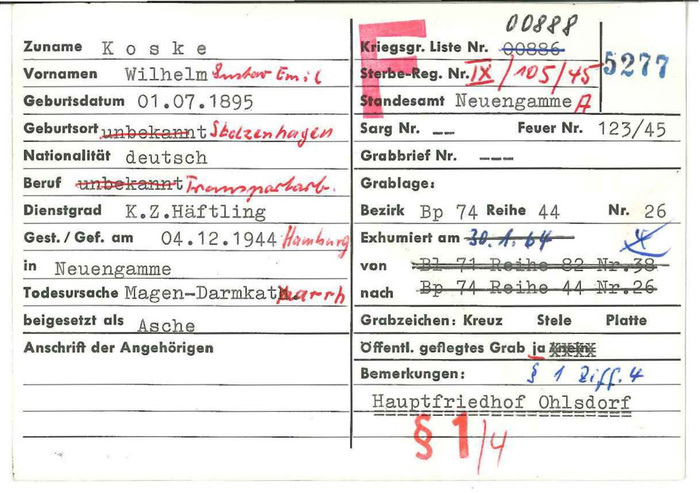 Zuname Koske
Vornamen Wilhelm Gustav Emil
Geburtsdatum 01.07.1895
Geburtsort unbekannt Stolzenhagen
Nationalität deutsch
Beruf unbekannt Transportarb.
Dienstgrad K.Z.Häftling
Gest./Gef. am 04.12.1944 Hamburg
in Neuengamme
Todesursache Magen-Darmkatharrh
beigesetzt als Asche
Anschrift der Angehörigen
F
00888
Kriegsgr. Liste Nr. 00886
5277
Sterbe-Reg. Nr. IX/105/45
Standesamt Neuengamme A
Sarg Nr. -- Feuer Nr. 123/45
Grabbrief Nr. ---
Grablage:
Bezirk Bp 74 Reihe 44 Nr. 26
Exhumiert am 30.1.64
von Bl 71 Reihe 82 Nr.38
nach Bp 74 Reihe 44 Nr.26
Grabzeichen: Kreuz Stele Platte
Öffentl. gepflegtes Grab ja nein
Bemerkungen: § 1 Ziff. 4
Hauptfriedhof Ohlsdorf
§ 1/4